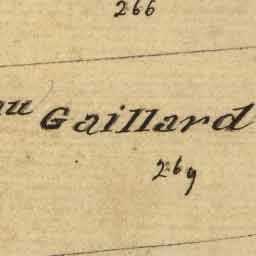 266
au Gaillard
269